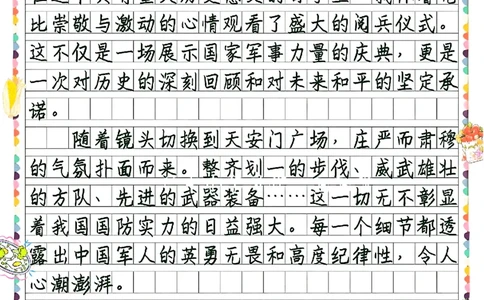 比崇敬与激动的心情观看了盛大的阅兵仪式。
这不仅是一场展示国家军事力量的庆典，更是
一次对历史的深刻回顾和对未来和平的坚定承
诺。
随着镜头切换到天安门广场，庄严而肃穆
的气氛扑面而来。整齐划一的步伐、威武雄壮
的方队、先进的武器装备……这一切无不彰显
着我国国防实力的日益强大。每一个细节都透
露出中国军人的英勇无畏和高度纪律性，令人
心潮澎湃。